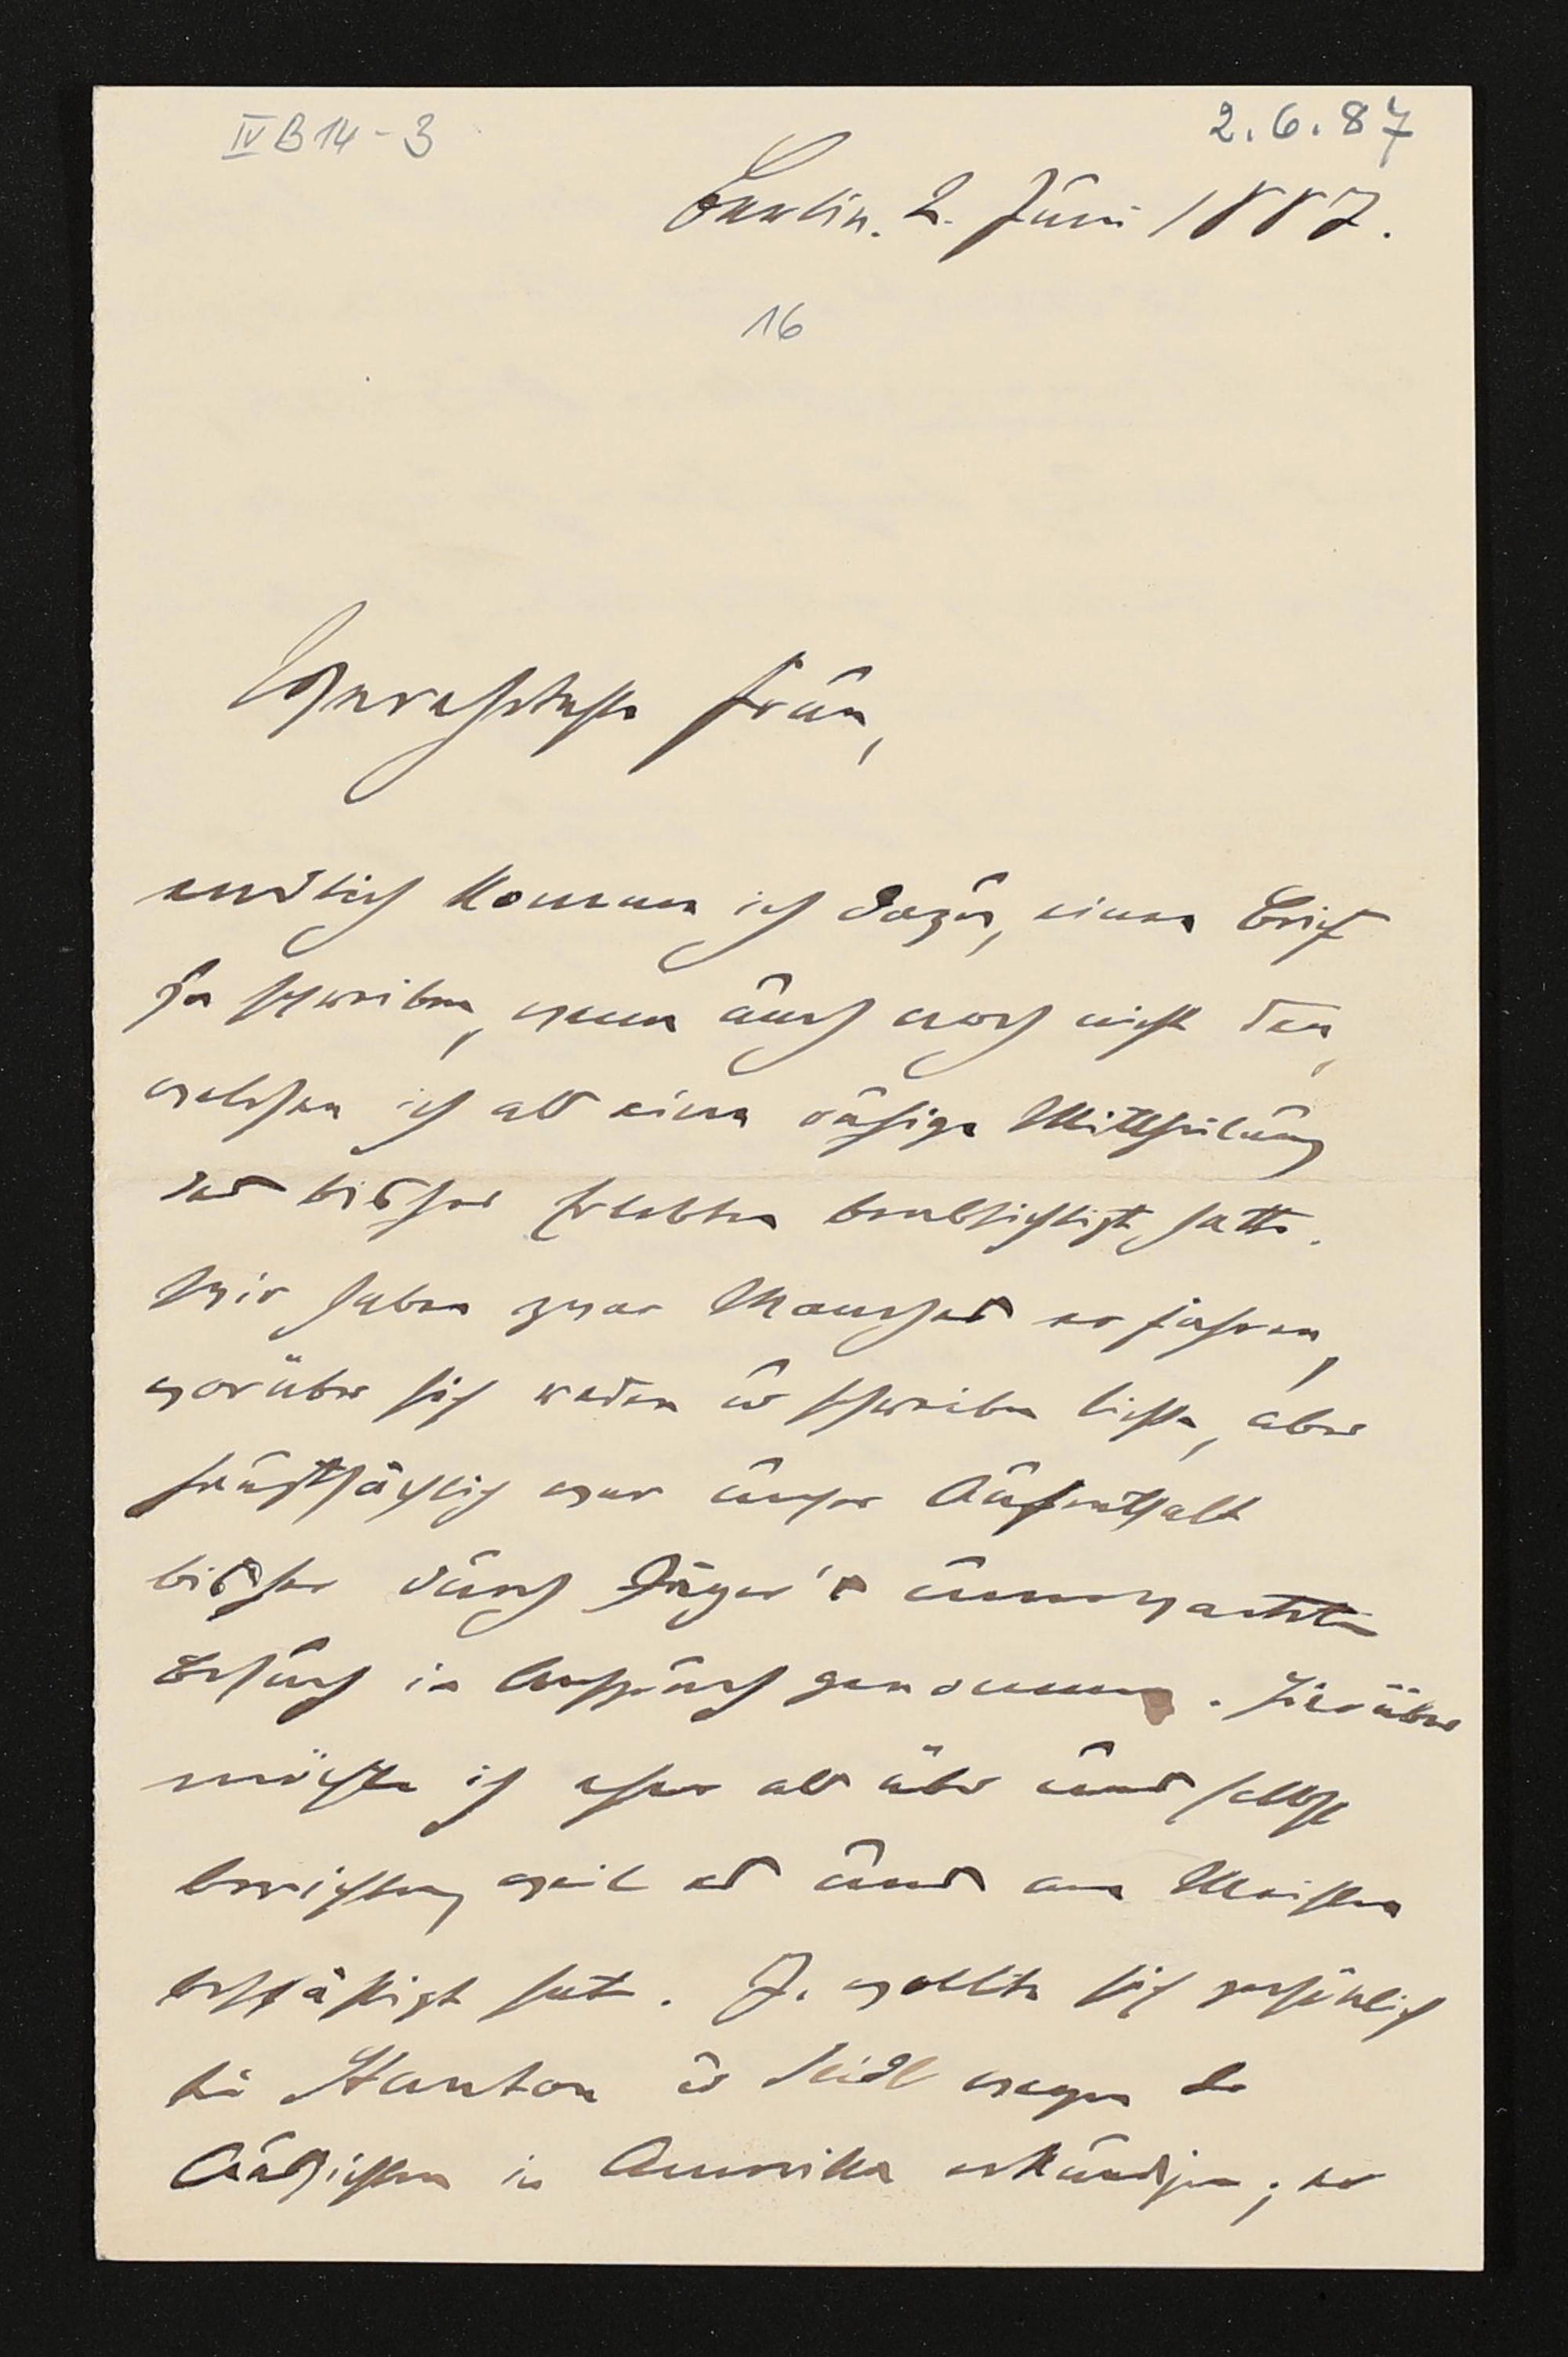 IV B 14 - 3
2.6.87
Berlin. 2. Juni 1887.
16
Hochverehrteste Frau,
endlich komme ich dazu, einen Brief
zu schreiben, wenn auch noch nicht den,
welchen ich als eine ruhige Mittheilung
des bisher Erlebten beabsichtigt hatte.
Wir haben zwar Manches erfahren,
worüber sich reden u schreiben ließe, aber
hauptsächlich war unser Aufenthalt
bisher durch Jäger's unerwarteten
Besuch in Anspruch genommen. Hierüber
möchte ich eher als über uns selbst
berichten, weil es uns am Meisten
beschäftigt hat. J. wollte sich persönlich
bei Stanton u Seidl wegen der
Aussichten in Amerika erkundigen; er